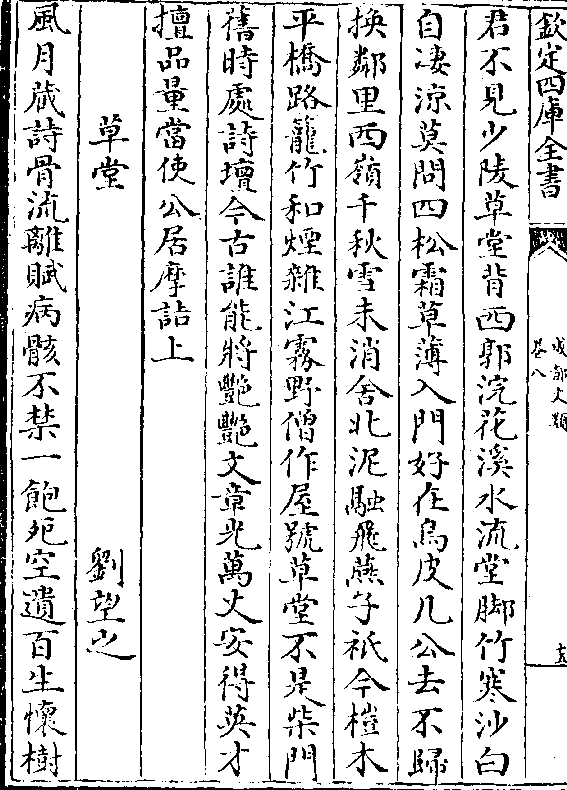 欽定四庫全書
成都文類
卷八
十五
君不見少陵草堂背西郭浣花溪水流堂脚竹寒沙白
自凄涼莫問四松霜草薄入門好在烏皮几公去不歸
換鄰里西嶺千秋雪未消舍北泥融飛燕子祇今榿木
平橋路籠竹和煙雜江霧野僧作屋號草堂不是柴門
舊時處詩壇今古誰能將艷艷文章光萬丈安得英才
擅品量當使公居摩詰上
草堂 劉望之
風月歲詩骨流離賦病骸不禁一飽死空遺百生懷樹